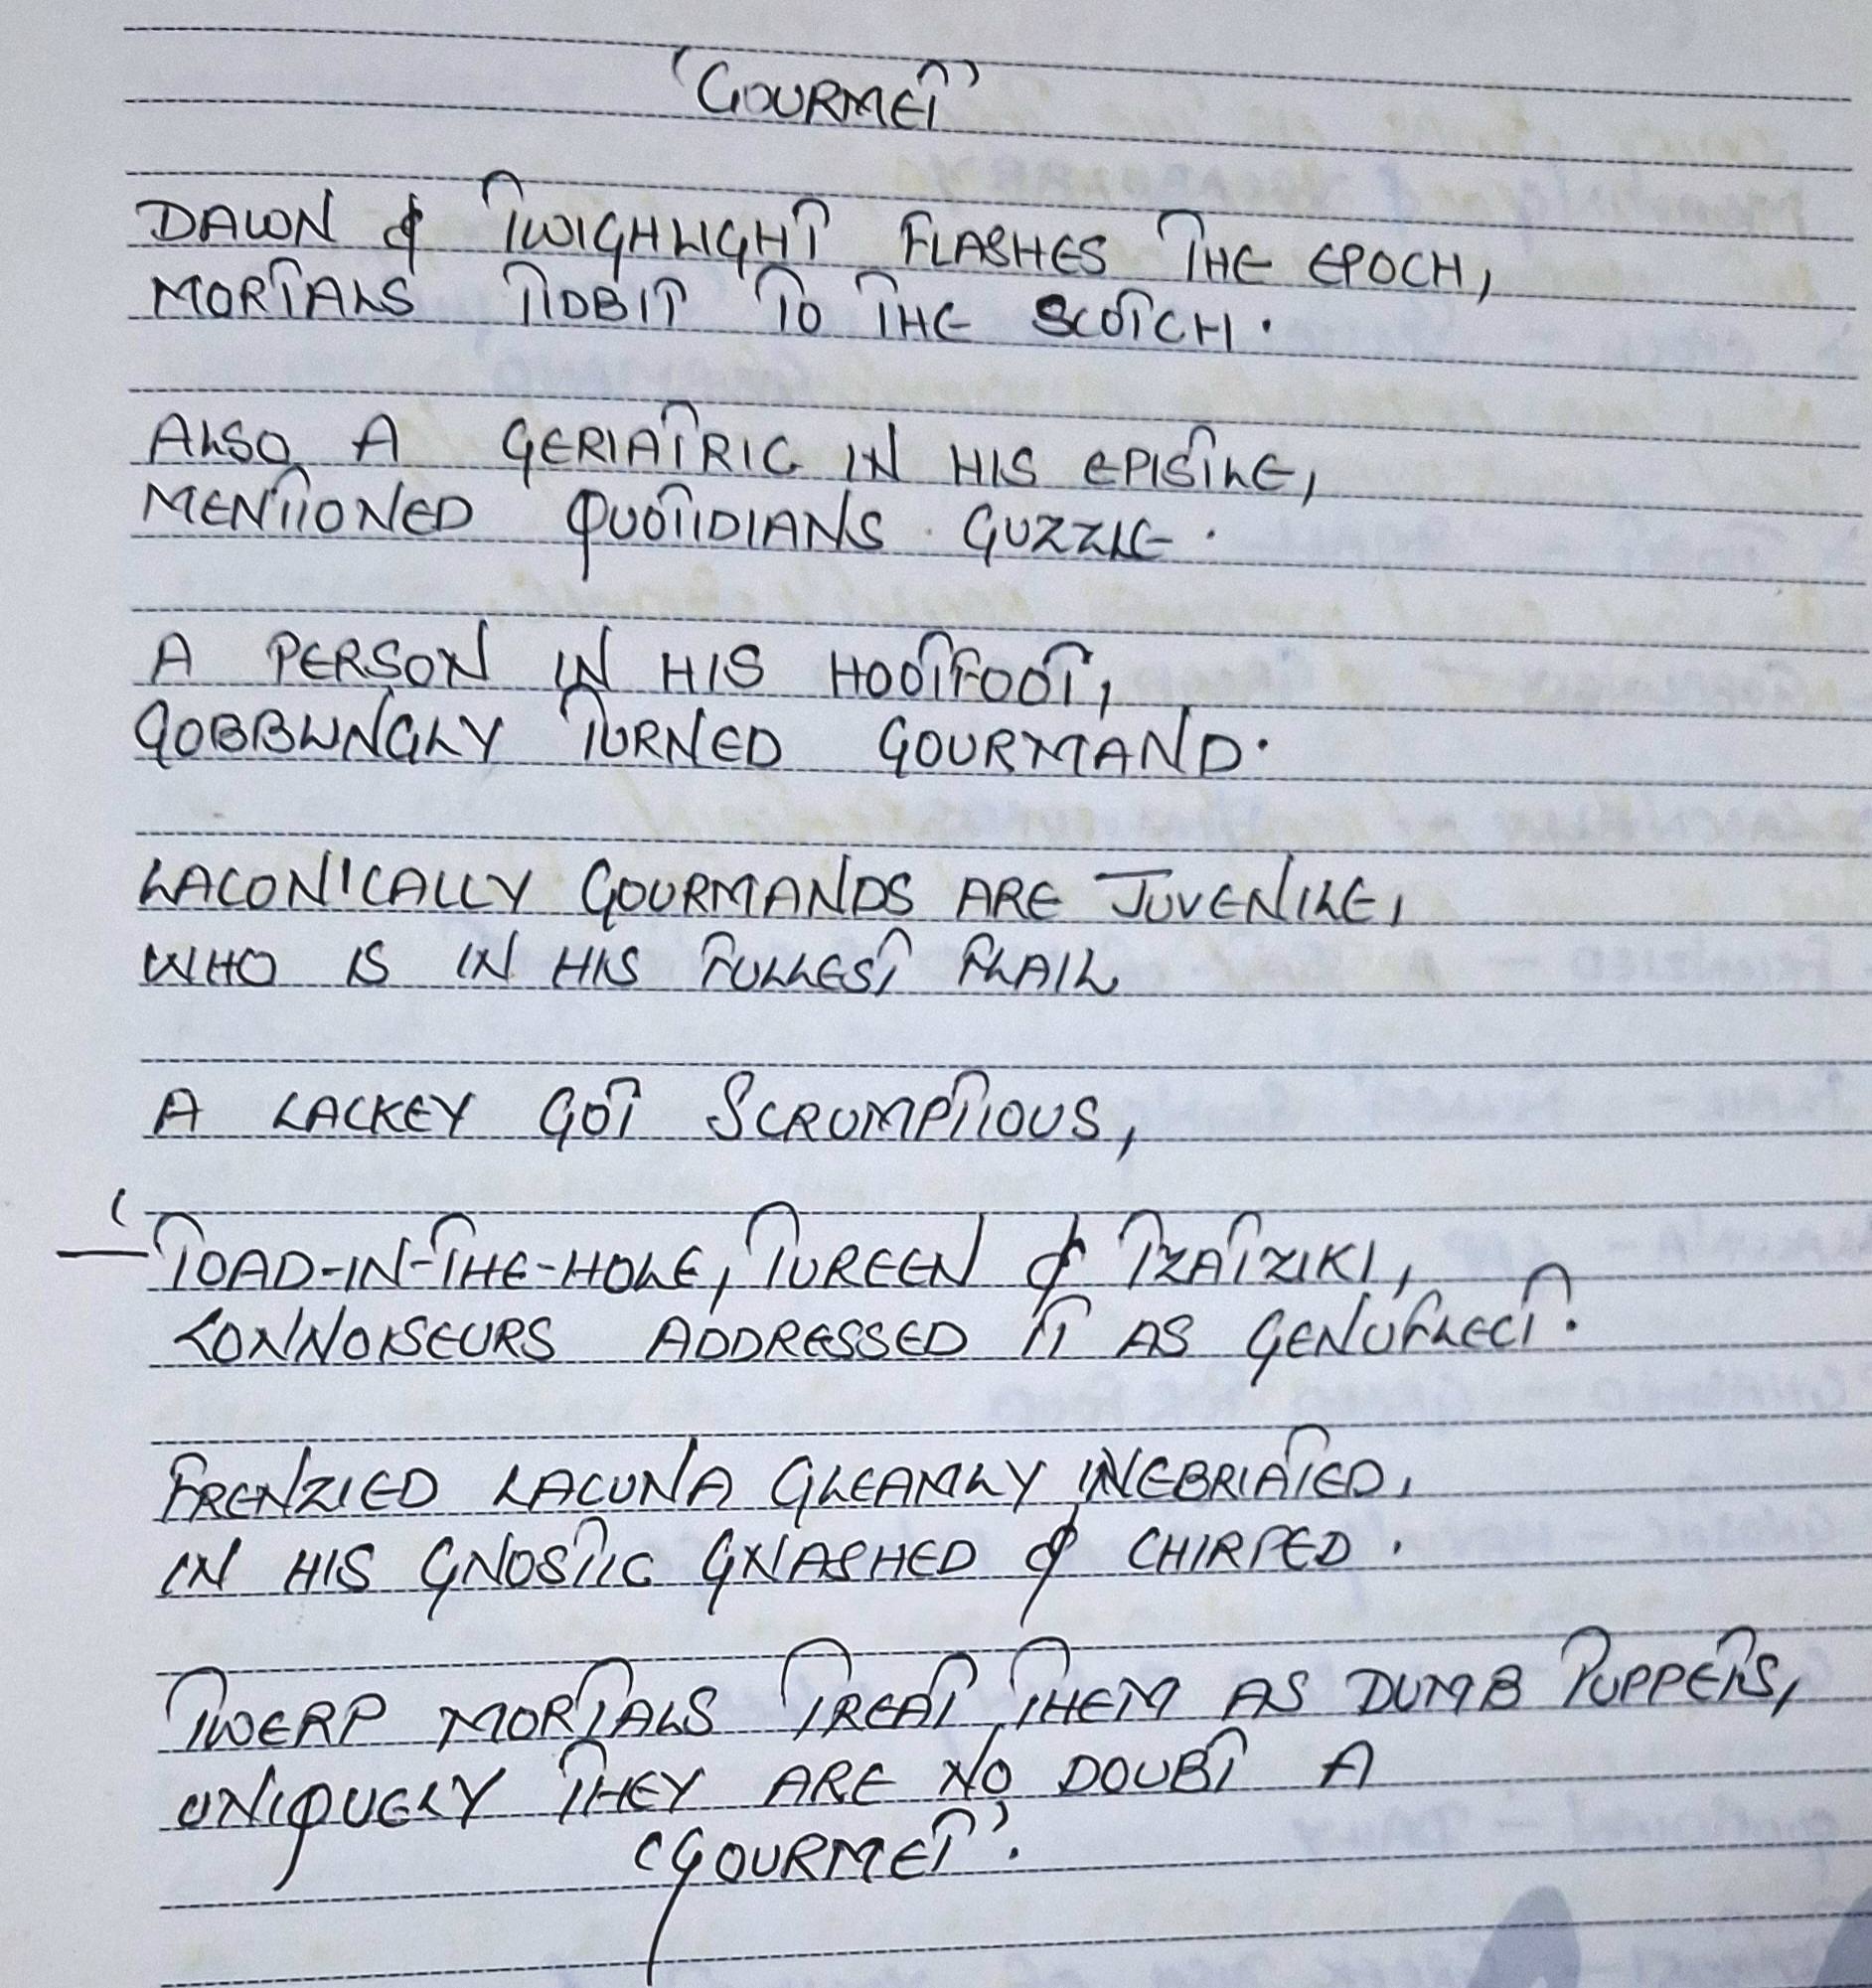 'GOURMET'
DAWN & TWIGHLIGHT FLASHES THE EPOCH,
MORTALS TIDBIT TO THE SCOTCH.
ALSO A GERIATRIC IN HIS EPISTLE,
MENTIONED QUOTIDIANS GUZZLE.
A PERSON IN HIS HOOTFOOT,
GOBBLINGLY TURNED GOURMAND.
LACONICALLY GOURMANDS ARE JUVENILE,
WHO IS IN HIS FULLEST FLAIL
A LACKEY GOT SCRUMPTIOUS,
TOAD-IN-THE-HOLE, TUREEN & TZATZIKI,
CONNOISEURS ADDRESSED IT AS GENUFLECT.
FRENZIED LACUNA GLEAMLY INEBRIATED,
IN HIS GNOSTIC GNASHED & CHIRPED.
TWERP MORTALS TREAT THEM AS DUMB PUPPETS,
UNIQUELY THEY ARE NO DOUBT A
'GOURMET'.